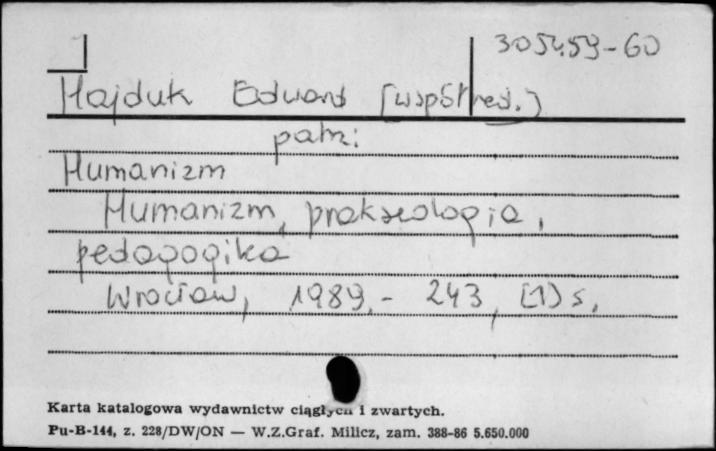 305459-60
Hajduk Edward [współred.]
patrz:
Humanizm
Humanizm, prakseologia,
pedagogika
Wrocław, 1989.- 243, [1] s.
Karta katalogowa wydawnictw ciągłych i zwartych.
Pu-B-144, z. 228/DW/ON — W.Z.Graf. Milicz, zam. 388-86 5.650.000